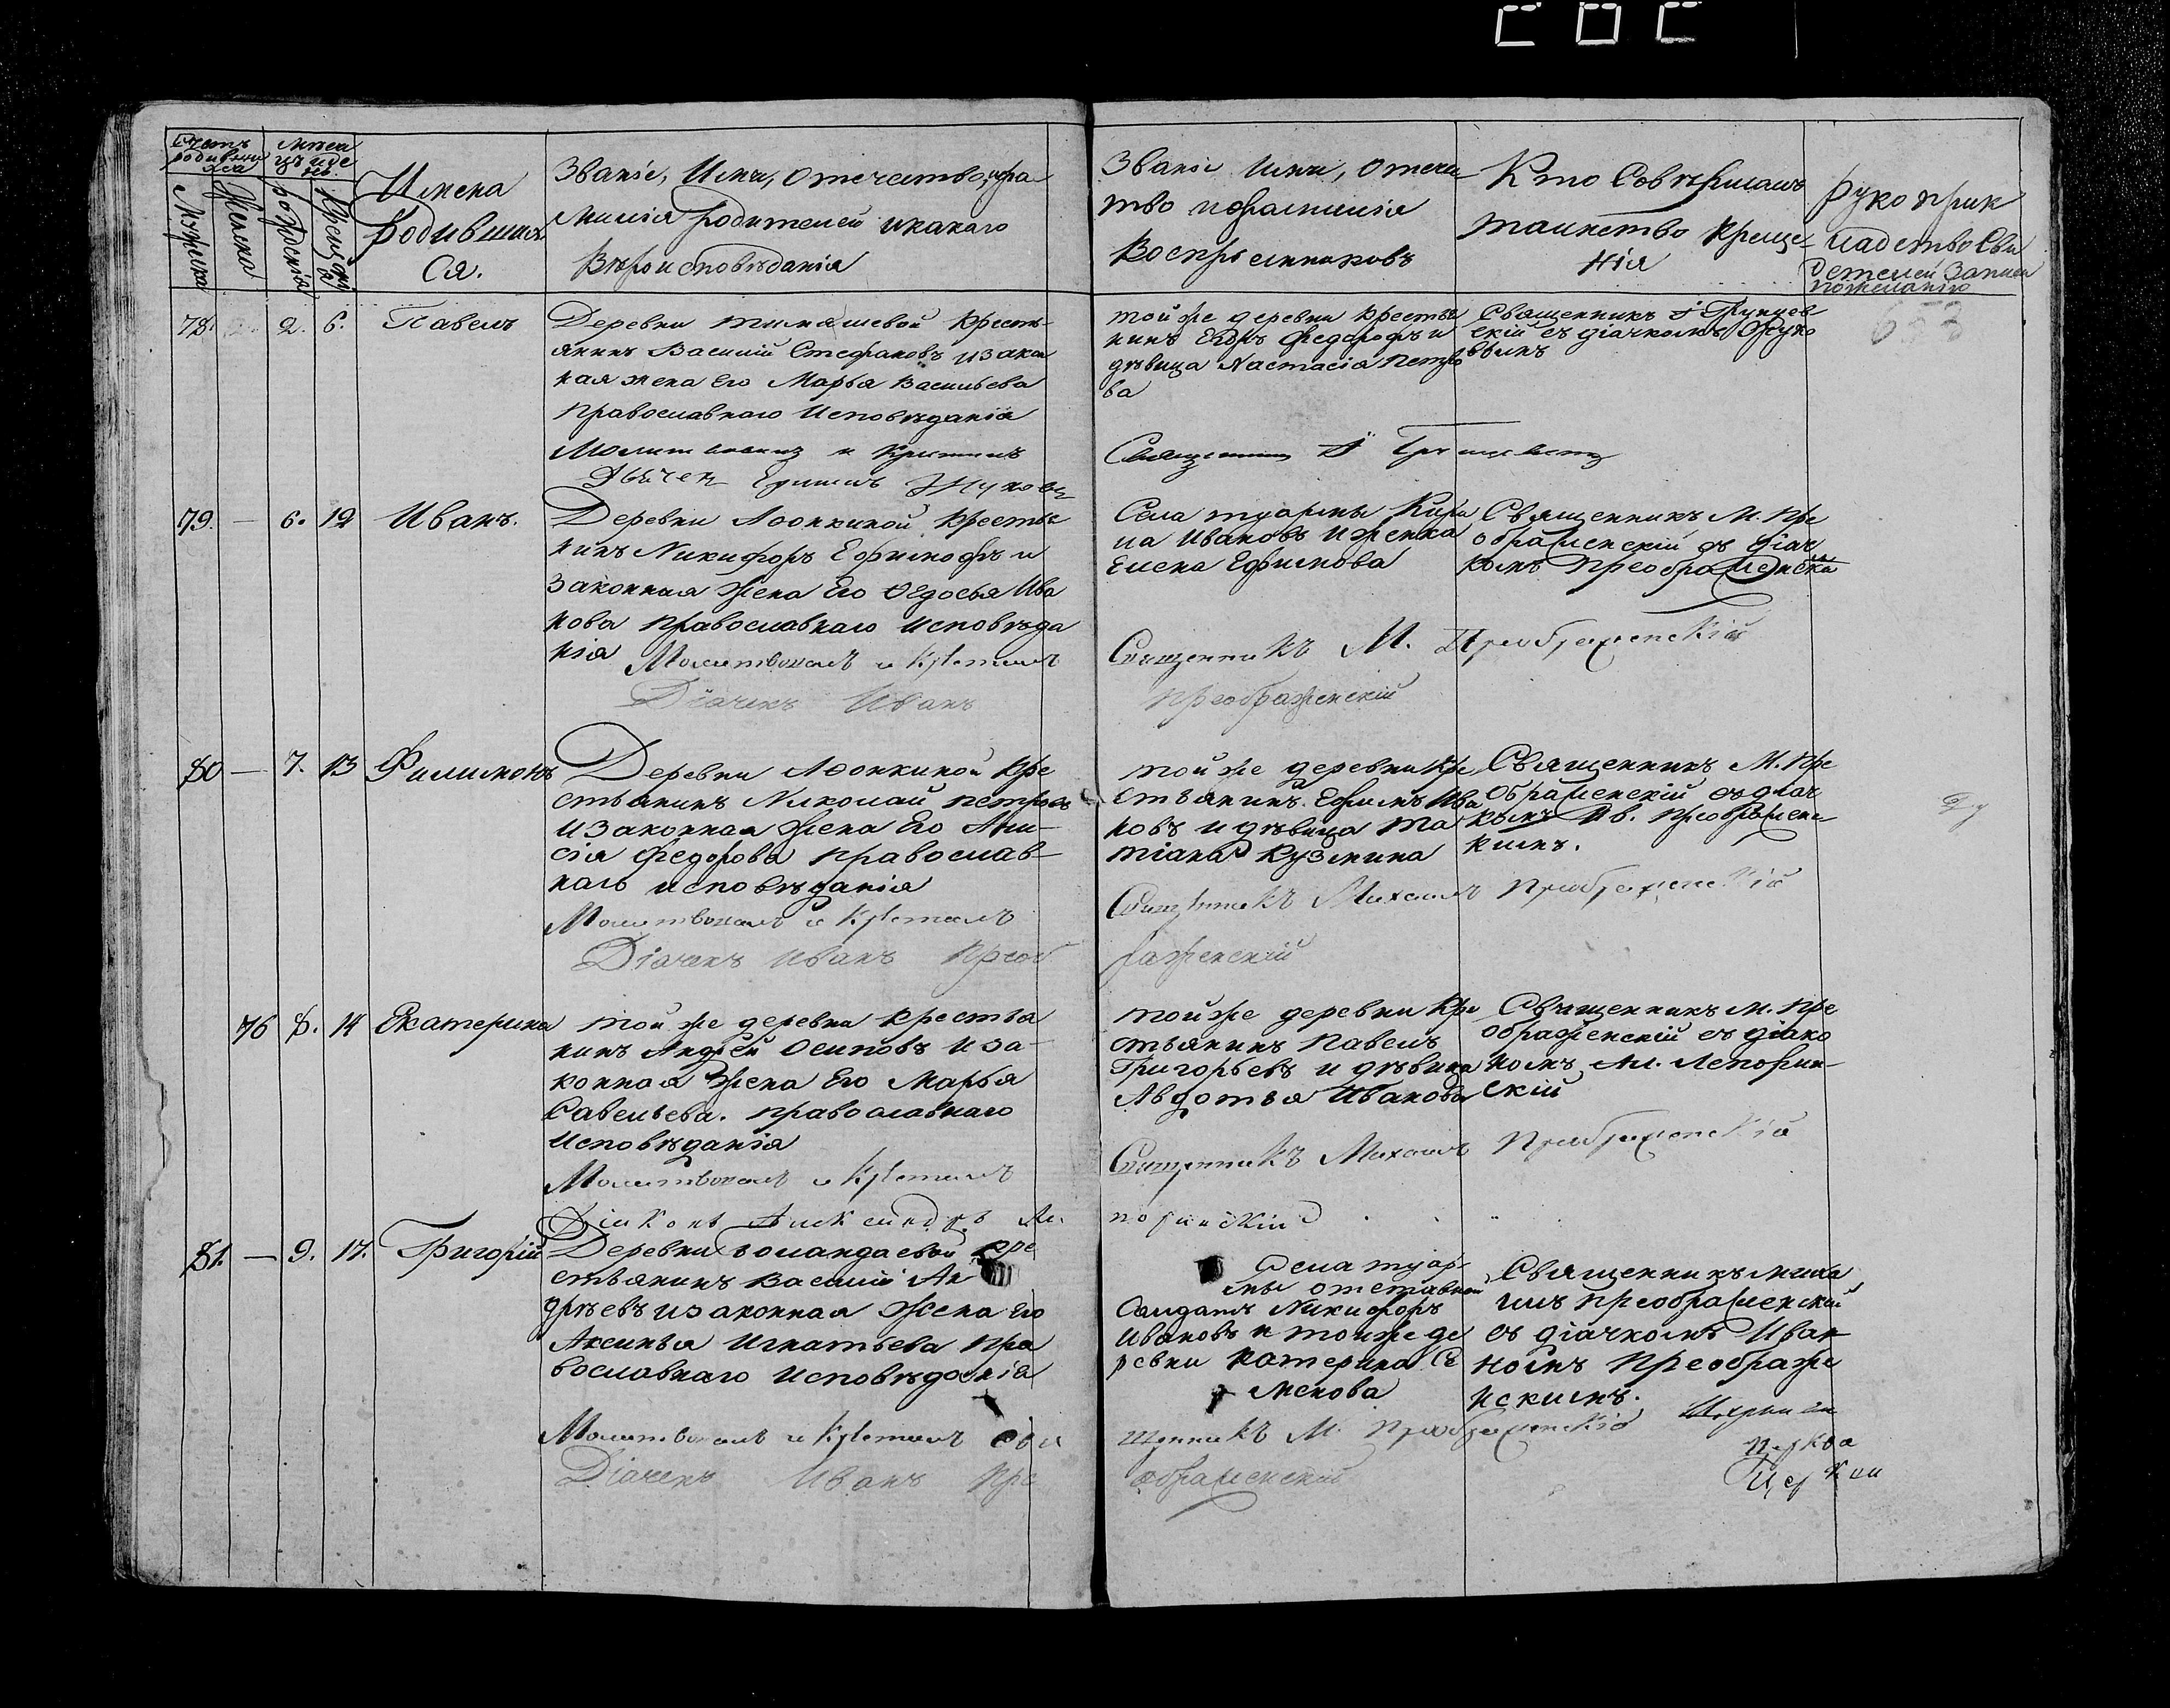 Счетъ родившихся
Мужеска
Женска
Месяцъ и день
рожденія
Крещенія
Имена
Родившихся.
Званіе, Имя, Отечество, и фа
милія Родителей и какаго
Вѣроисповѣданія
Званіе Имя, Отече
тво и фамилія
Воспріемниковъ
Кто Совершалъ
таинство Креще
нія
Рукоприк
ладство Сви
детелей Записи
по желанію
78.
2.
6.
Павелъ
Деревни крестъ-
янинъ Василій Стефановъ и закон
ная жена Его Марья Васильева
православнаго Исповѣданія
Молитвовалъ и Крестилъ
Дьячек Жуковъ
той же деревни крестья
нинъ Егоръ Федоровъ и
дѣвица Настасія Петро
ва
Священникъ І Грунцев
скій съ діачкомъ Жуко
вымъ
Священникъ І
79.
—
6.
12
Иванъ.
Деревни Афонкиной крестья
нинъ Никифоръ Ефимовъ и
Законная жена Его Федосья Ива
нова православнаго исповѣда
нія Молитвовалъ и Крестилъ
Діачекъ Иванъ
Села туармы Кири
ла Ивановъ и женка
Елена Ефимова
Священникъ М. Пре
ображенскій съ діач
комъ Преображенски
Священникъ М. Преображенскій
преображенскій
80
—
7.
13
Филимонъ
Деревни Афонкиной кре
стьянинъ Николай петровъ
и Законная жена Его Ани-
сія Федорова православ-
наго исповѣданія
Молитвовалъ и Крестилъ
Діачекъ Иванъ Преоб
той же деревни кре
стьянинъ Ефимъ Ива
новъ и дѣвица Та
тіана Кузмина
Священникъ М. Пре
ображенскій съ діач
комъ Ив. Преображенс
кимъ.
Священникъ Михаилъ Преображенскій
раженскій
76
8.
14
Екатерина
той же деревни крестья
нинъ Андрей Осиповъ и за-
конная жена Его Марья
Савельева. православнаго
исповѣданія
Молитвовалъ и Крестилъ
Діаконъ Александръ Ле
той же деревни кре
стьянинъ Павелъ
Григорьевъ и дѣвица
Авдотья Иванова
Священникъ М. Пре
ображенскій съ діако
номъ Ал. Лепорин-
скій
Священникъ Михаилъ Преображенскій
поринскій
81.
—
9.
17.
Григорій
Деревни кре
стьянинъ Василій Ан
дрѣевъ и законная жена Его
Аксинья Игнатьева пра
вославнаго исповѣданія
Молитвовалъ и Крестилъ Свя
Діачекъ Иванъ Пре
Села туар-
мы отставной
Салдатъ Никифоръ
Ивановъ и той же де
ревни Катерина Се
менова
Священникъ Миха
илъ преображенскій
съ діачкомъ Иван
номъ Преображе
нскимъ.
щенникъ М. Преображенскій
ображенскій